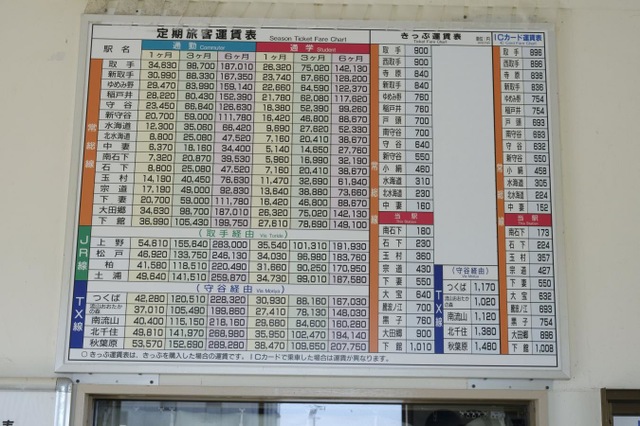 定期旅客運賃表 Season Ticket Fare Chart
駅名 通勤 Commuter 通学 Student
1ヶ月 3ヶ月 6ヶ月 1ヶ月 3ヶ月 6ヶ月
常総線
取手 34,630 98,700 187,010 26,320 75,020 142,130
新取手 30,990 88,330 167,350 23,740 67,660 128,200
ゆめみ野 29,470 83,990 159,140 22,660 64,590 122,370
稲戸井 28,220 80,430 152,390 21,780 62,080 117,620
守谷 23,450 66,840 126,630 18,380 52,390 99,260
新守谷 20,700 59,000 111,780 16,420 46,800 88,670
水海道 12,300 35,060 66,420 9,690 27,620 52,330
北水海道 8,800 25,080 47,520 7,160 20,410 38,670
中妻 6,370 18,160 34,400 5,140 14,650 27,760
南石下 7,320 20,870 39,530 5,960 16,990 32,190
石下 8,800 25,080 47,520 7,160 20,410 38,670
玉村 14,190 40,450 76,630 11,470 32,690 61,940
宗道 17,190 49,000 92,830 13,640 38,880 73,660
下妻 20,700 59,000 111,780 16,420 46,800 88,670
大田郷 34,630 98,700 187,010 26,320 75,020 142,130
下館 36,990 105,430 199,750 27,610 78,690 149,100
JR線
(取手経由) Via Toride
上野 54,610 155,640 283,000 35,540 101,310 191,930
松戸 46,920 133,750 246,130 34,030 96,980 183,760
柏 41,580 118,510 220,490 31,660 90,250 170,950
土浦 49,640 141,510 259,870 34,730 99,010 187,580
TX線
(守谷経由) Via Moriya
つくば 42,280 120,510 228,320 30,930 88,160 167,030
流山おおたかの森 37,010 105,490 199,860 27,410 78,130 148,030
南流山 40,400 115,150 218,160 29,680 84,600 160,280
北千住 49,810 141,970 268,980 35,950 102,470 194,140
秋葉原 53,570 152,690 289,280 38,470 109,650 207,750
○きっぷ運賃表は、きっぷを購入した場合の運賃です。ICカードで乗車した場合は運賃が異なります。
きっぷ運賃表
Ticket Fare Chart
常総線
取手 900
西取手 900
寺原 840
新取手 840
ゆめみ野 760
稲戸井 760
戸頭 700
南守谷 700
守谷 640
新守谷 550
小絹 460
水海道 310
北水海道 230
中妻 160
当駅
南石下 180
石下 230
玉村 360
宗道 430
下妻 550
大宝 640
騰波ノ江 700
黒子 760
大田郷 900
下館 1,010
TX線
(守谷経由) Via Moriya
つくば 1,170
流山おおたかの森 1,020
南流山 1,120
北千住 1,380
秋葉原 1,480
ICカード運賃表
IC Card Fare Chart
常総線
取手 896
西取手 896
寺原 838
新取手 836
ゆめみ野 754
稲戸井 754
戸頭 693
南守谷 693
守谷 632
新守谷 550
小絹 459
水海道 305
北水海道 224
中妻 152
当駅
南石下 173
石下 224
玉村 357
宗道 427
下妻 550
大宝 632
騰波ノ江 693
黒子 754
大田郷 896
下館 1,008